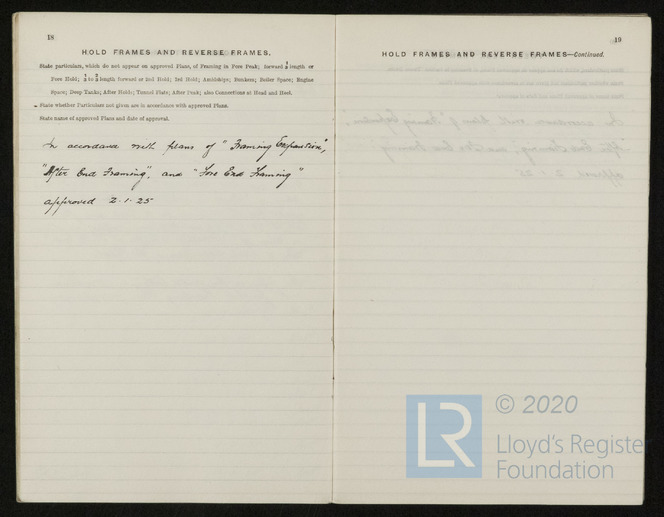 18
HOLD FRAMES AND REVERSE FRAMES.
State particulars, which do not appear on approved Plans, of Framing in Fore Peak; forward 1/5 length or
Fore Hold; 1/5 to 3/5 length forward or 2nd Hold; 3rd Hold; Amidships; Bunkers; Boiler Space; Engine
Space; Deep Tanks; After Holds; Tunnel Flats; After Peak; also Connections at Head and Heel.
State whether Particulars not given are in accordance with approved Plans.
State name of approved Plans and date of approval.
In accordance with plans of "Framing Expansion",
"After End Framing", and "Fore End Framing"
approved 2.1.25
19
HOLD FRAMES AND REVERSE FRAMES—Continued.
LR
© 2020
Lloyd's Register
Foundation